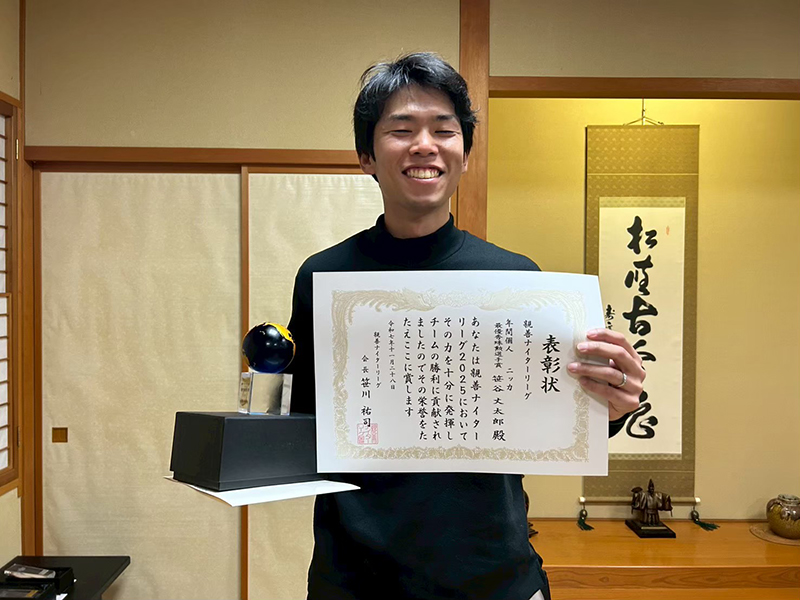 表彰状
親善ナイターリーグ
年間個人　ニッカ
最優秀殊勲選手賞　笹谷 丈太郎 殿
あなたは親善ナイター
リーグ2025において
その力を十分に発揮し
チームの勝利に貢献され
ましたのでその栄誉をた
たえここに賞します
令和七年十一月二十八日
親善ナイターリーグ
会長 笹川 祐司